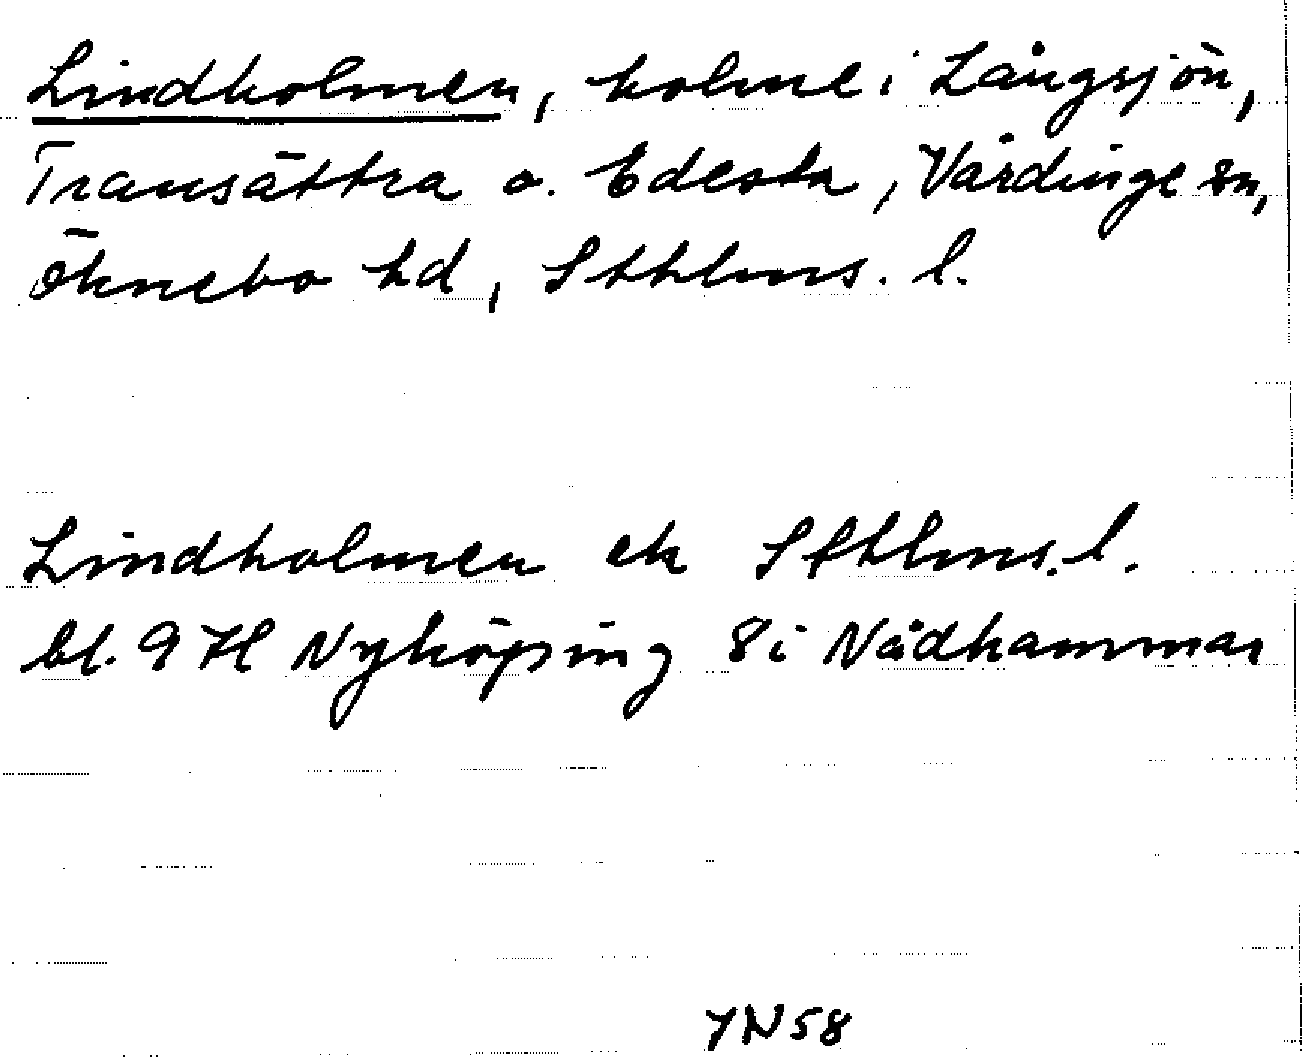 Lindholmen, holme i Långsjön,
Transättra o. Edesta, Vårdinge sn,
Öknebo hd, Sthlms. l.
Lindholmen ek Sthlms. l.
bl. 9 H Nyköping 8i Nådhammar
YN58